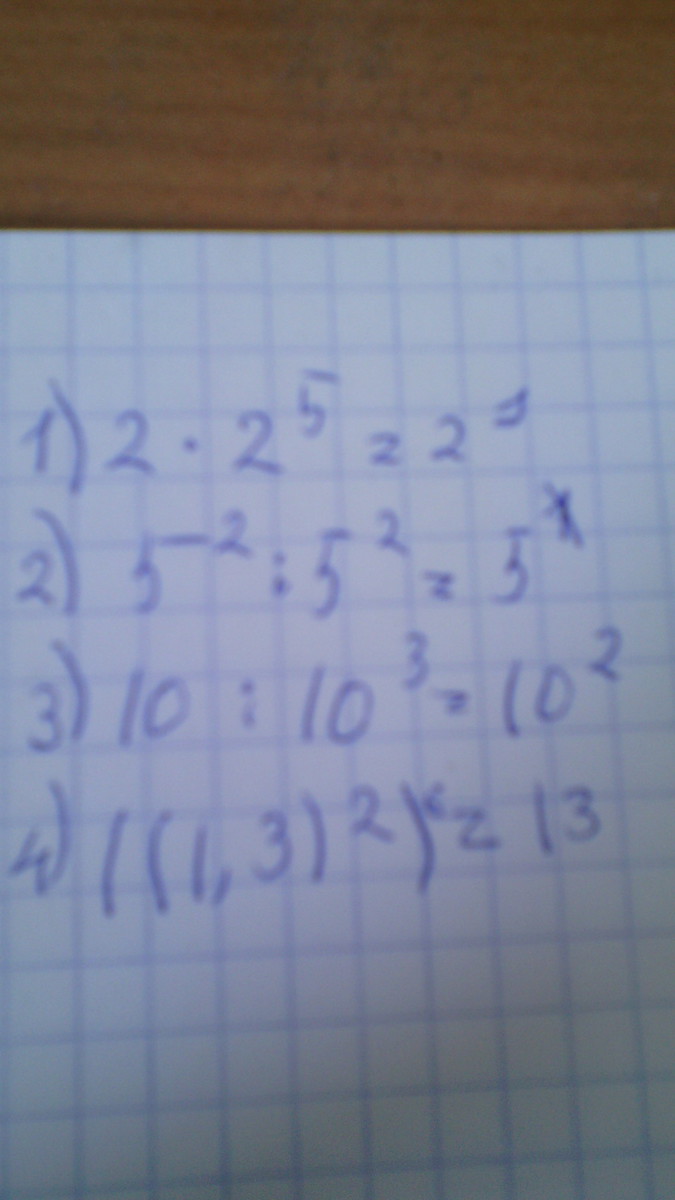 1) 2 · 2⁵ = 2
2) 5⁻² : 5² = 5
3) 10 : 10³ = 10²
4) ((1,3)²) = 13